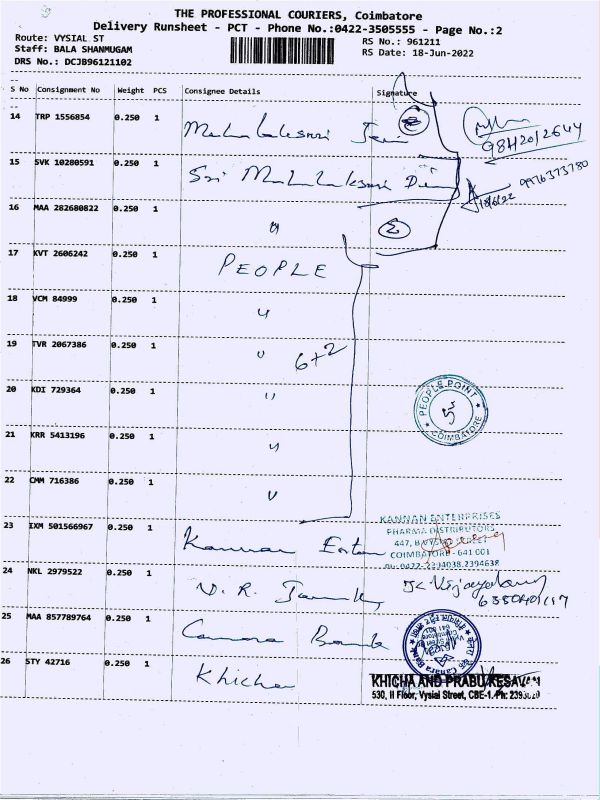 THE PROFESSIONAL COURIERS, Coimbatore
Delivery Runsheet - PCT - Phone No.:0422-3505555 - Page No.:2
Route: VYSIAL ST
RS No.: 961211
Staff: BALA SHANMUGAM
RS Date: 18-Jun-2022
DRS No.: DCJB96121102
S No Consignment No Weight PCS Consignee Details Signature
14 TRP 1556854 0.250 1
15 SVK 10280591 0.250 1 Sri
18/6/22
16 MAA 282680822 0.250 1 "
17 KVT 2606242 0.250 1 PEOPLE
18 VCM 84999 0.250 1 "
19 TVR 2067386 0.250 1 " 6+2
20 KDI 729364 0.250 1 "
PEOPLE POINT
COIMBATORE
21 KRR 5413196 0.250 1 "
22 CMM 716386 0.250 1 "
KANNAN ENTERPRISES
PHARMA DISTRIBUTORS
23 IXM 501566967 0.250 1 Kannan
COIMBATORE - 641 001
24 NKL 2979522 0.250 1 N. R.
25 MAA 857789764 0.250 1 Canara Bank
26 STY 42716 0.250 1 Khicha
KHICHA AND PRABU KESAVAN
530, II Floor, Vysial Street, CBE-1. Ph: